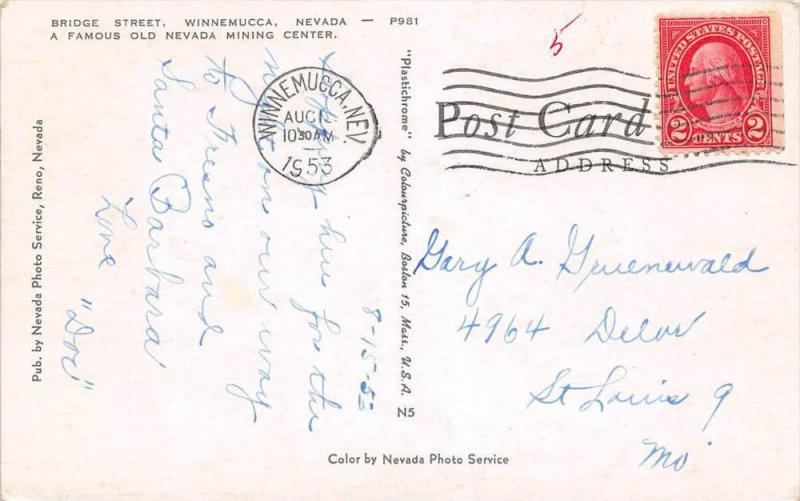 BRIDGE STREET, WINNEMUCCA, NEVADA — P981
A FAMOUS OLD NEVADA MINING CENTER.
8-15-53
here for the
night on our way
to Fresno and
Santa Barbara
Love
"Doc"
Pub. by Nevada Photo Service, Reno, Nevada
WINNEMUCCA, NEV.
AUG
10 30 AM
1953
"Plastichrome" by Colourpicture, Boston 15, Mass., U.S.A.
N5
5
Post Card
ADDRESS
UNITED STATES POSTAGE
WASHINGTON
2 CENTS 2
Gary A. Gruenewald
4964 Delor
St Louis 9
Mo
Color by Nevada Photo Service